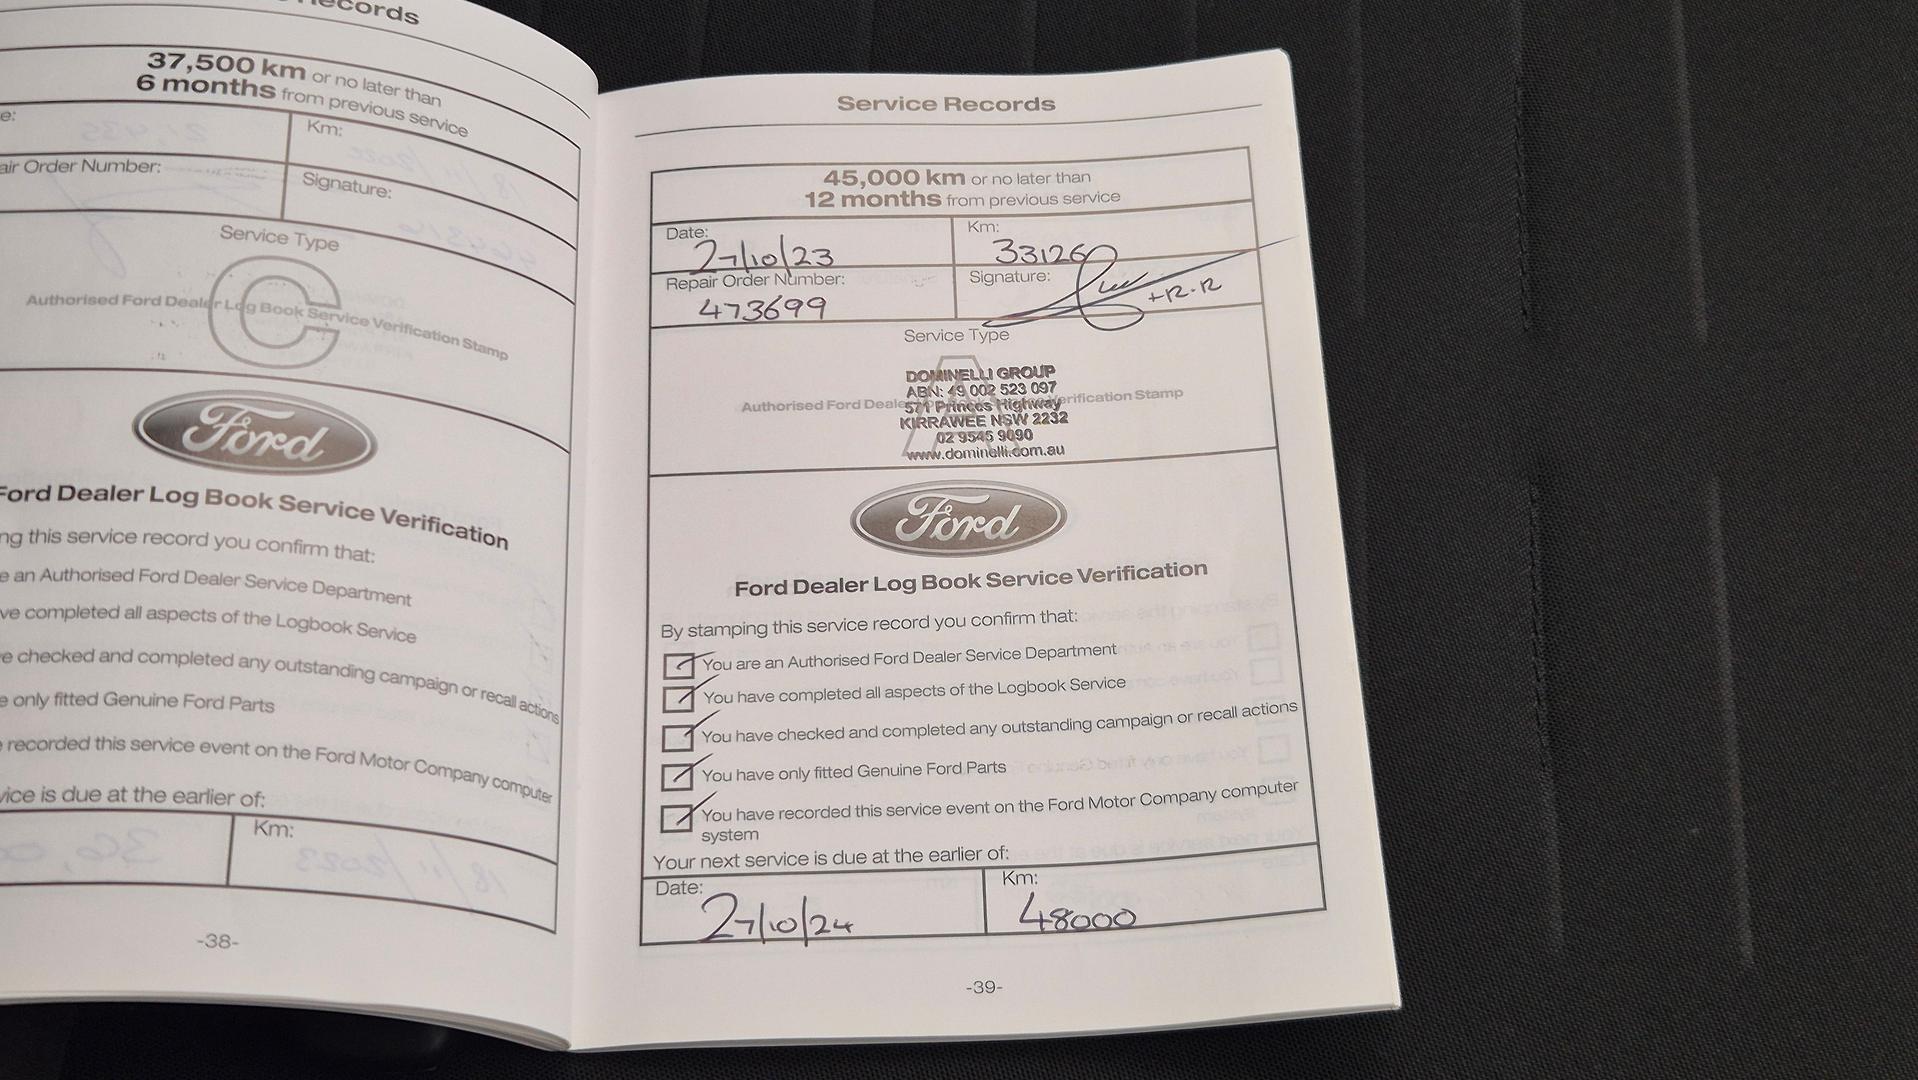 Records
37,500 km or no later than
6 months from previous service
e:
Km:
air Order Number:
Signature:
Service Type
C
Authorised Ford Dealer Log Book Service Verification Stamp
Ford
Ford Dealer Log Book Service Verification
ng this service record you confirm that:
e an Authorised Ford Dealer Service Department
ve completed all aspects of the Logbook Service
e checked and completed any outstanding campaign or recall actions
e only fitted Genuine Ford Parts
recorded this service event on the Ford Motor Company computer
vice is due at the earlier of:
Km:
-38-
Service Records
45,000 km or no later than
12 months from previous service
Date:
27/10/23
Km:
33126
Repair Order Number:
473699
Signature:
+R.R
Service Type
A
DOMINELLI GROUP
ABN: 49 002 523 097
Authorised Ford Deale 571 Princes Highway erification Stamp
KIRRAWEE NSW 2232
02 9545 9090
www.dominelli.com.au
Ford
Ford Dealer Log Book Service Verification
By stamping this service record you confirm that:
You are an Authorised Ford Dealer Service Department
You have completed all aspects of the Logbook Service
You have checked and completed any outstanding campaign or recall actions
You have only fitted Genuine Ford Parts
You have recorded this service event on the Ford Motor Company computer
system
Your next service is due at the earlier of:
Date:
27/10/24
Km:
48000
-39-